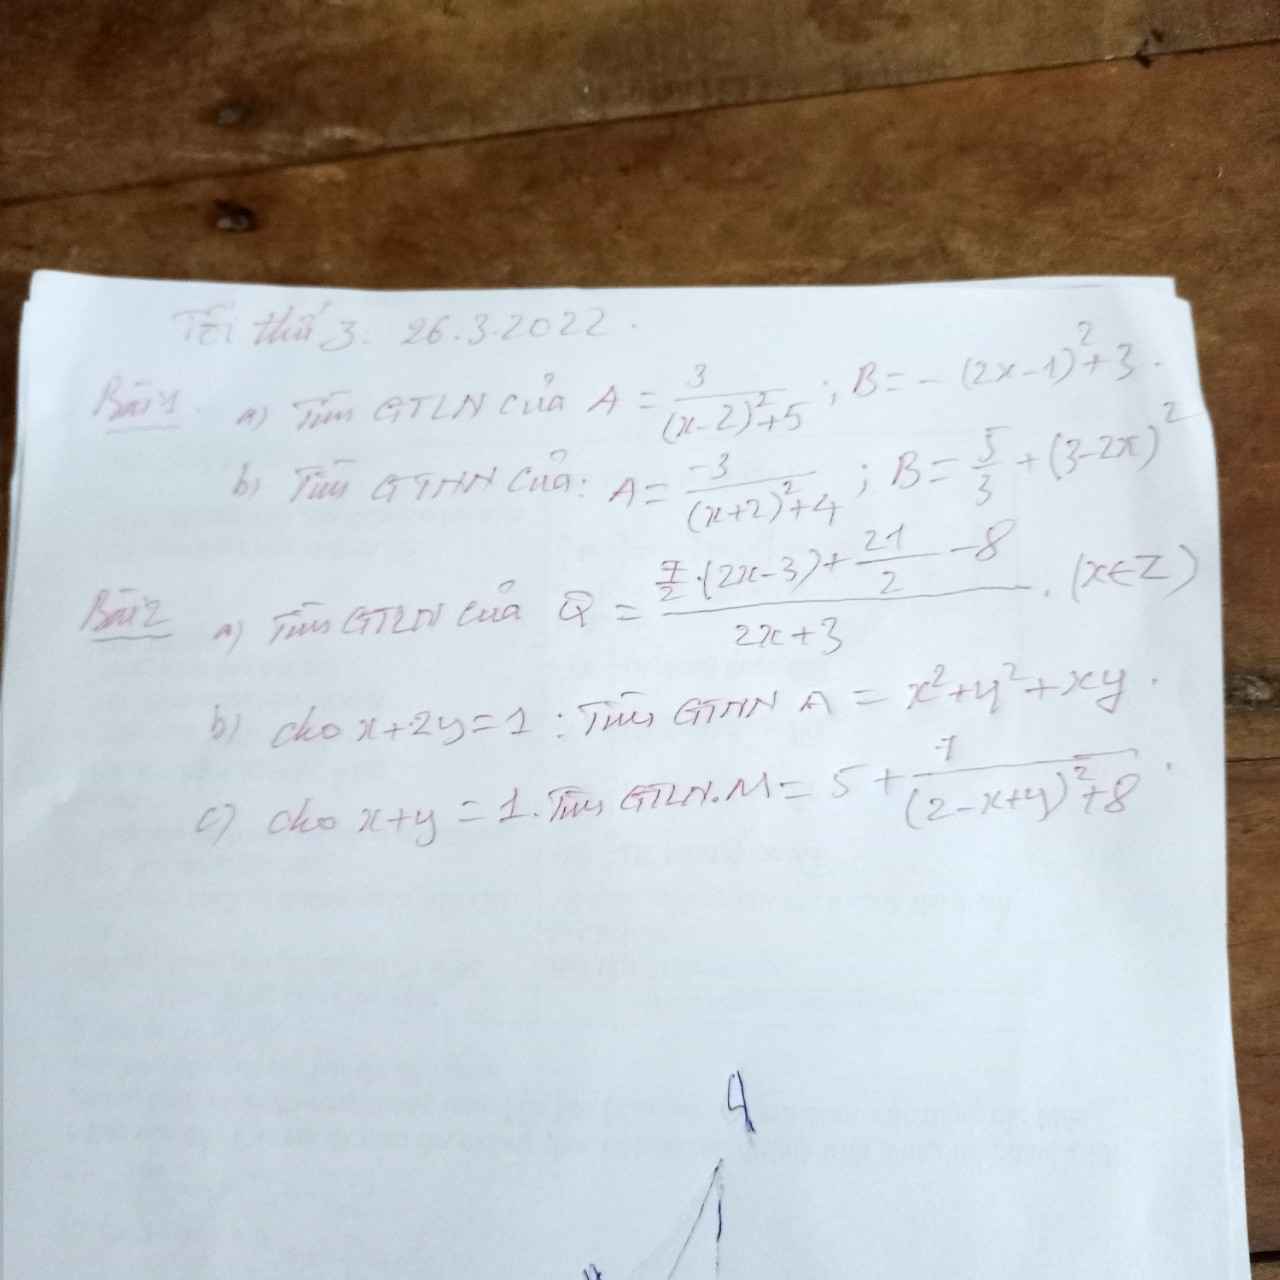 Tối thứ 3. 26.3.2022.
Bài 1. a) Tìm GTLN của A = 3/((x-2)²+5) ; B = -(2x-1)²+3.
b) Tìm GTNN của: A = -3/((x+2)²+4) ; B = 5/3 + (3-2x)²
Bài 2 a) Tìm GTLN của Q = (7/2·(2x-3)+21/2-8)/(2x+3). (x∈Z)
b) cho x+2y=1 : Tìm GTNN A = x²+y²+xy.
c) cho x+y = 1. Tìm GTLN. M = 5 + /((2-x+y)²+8).
A